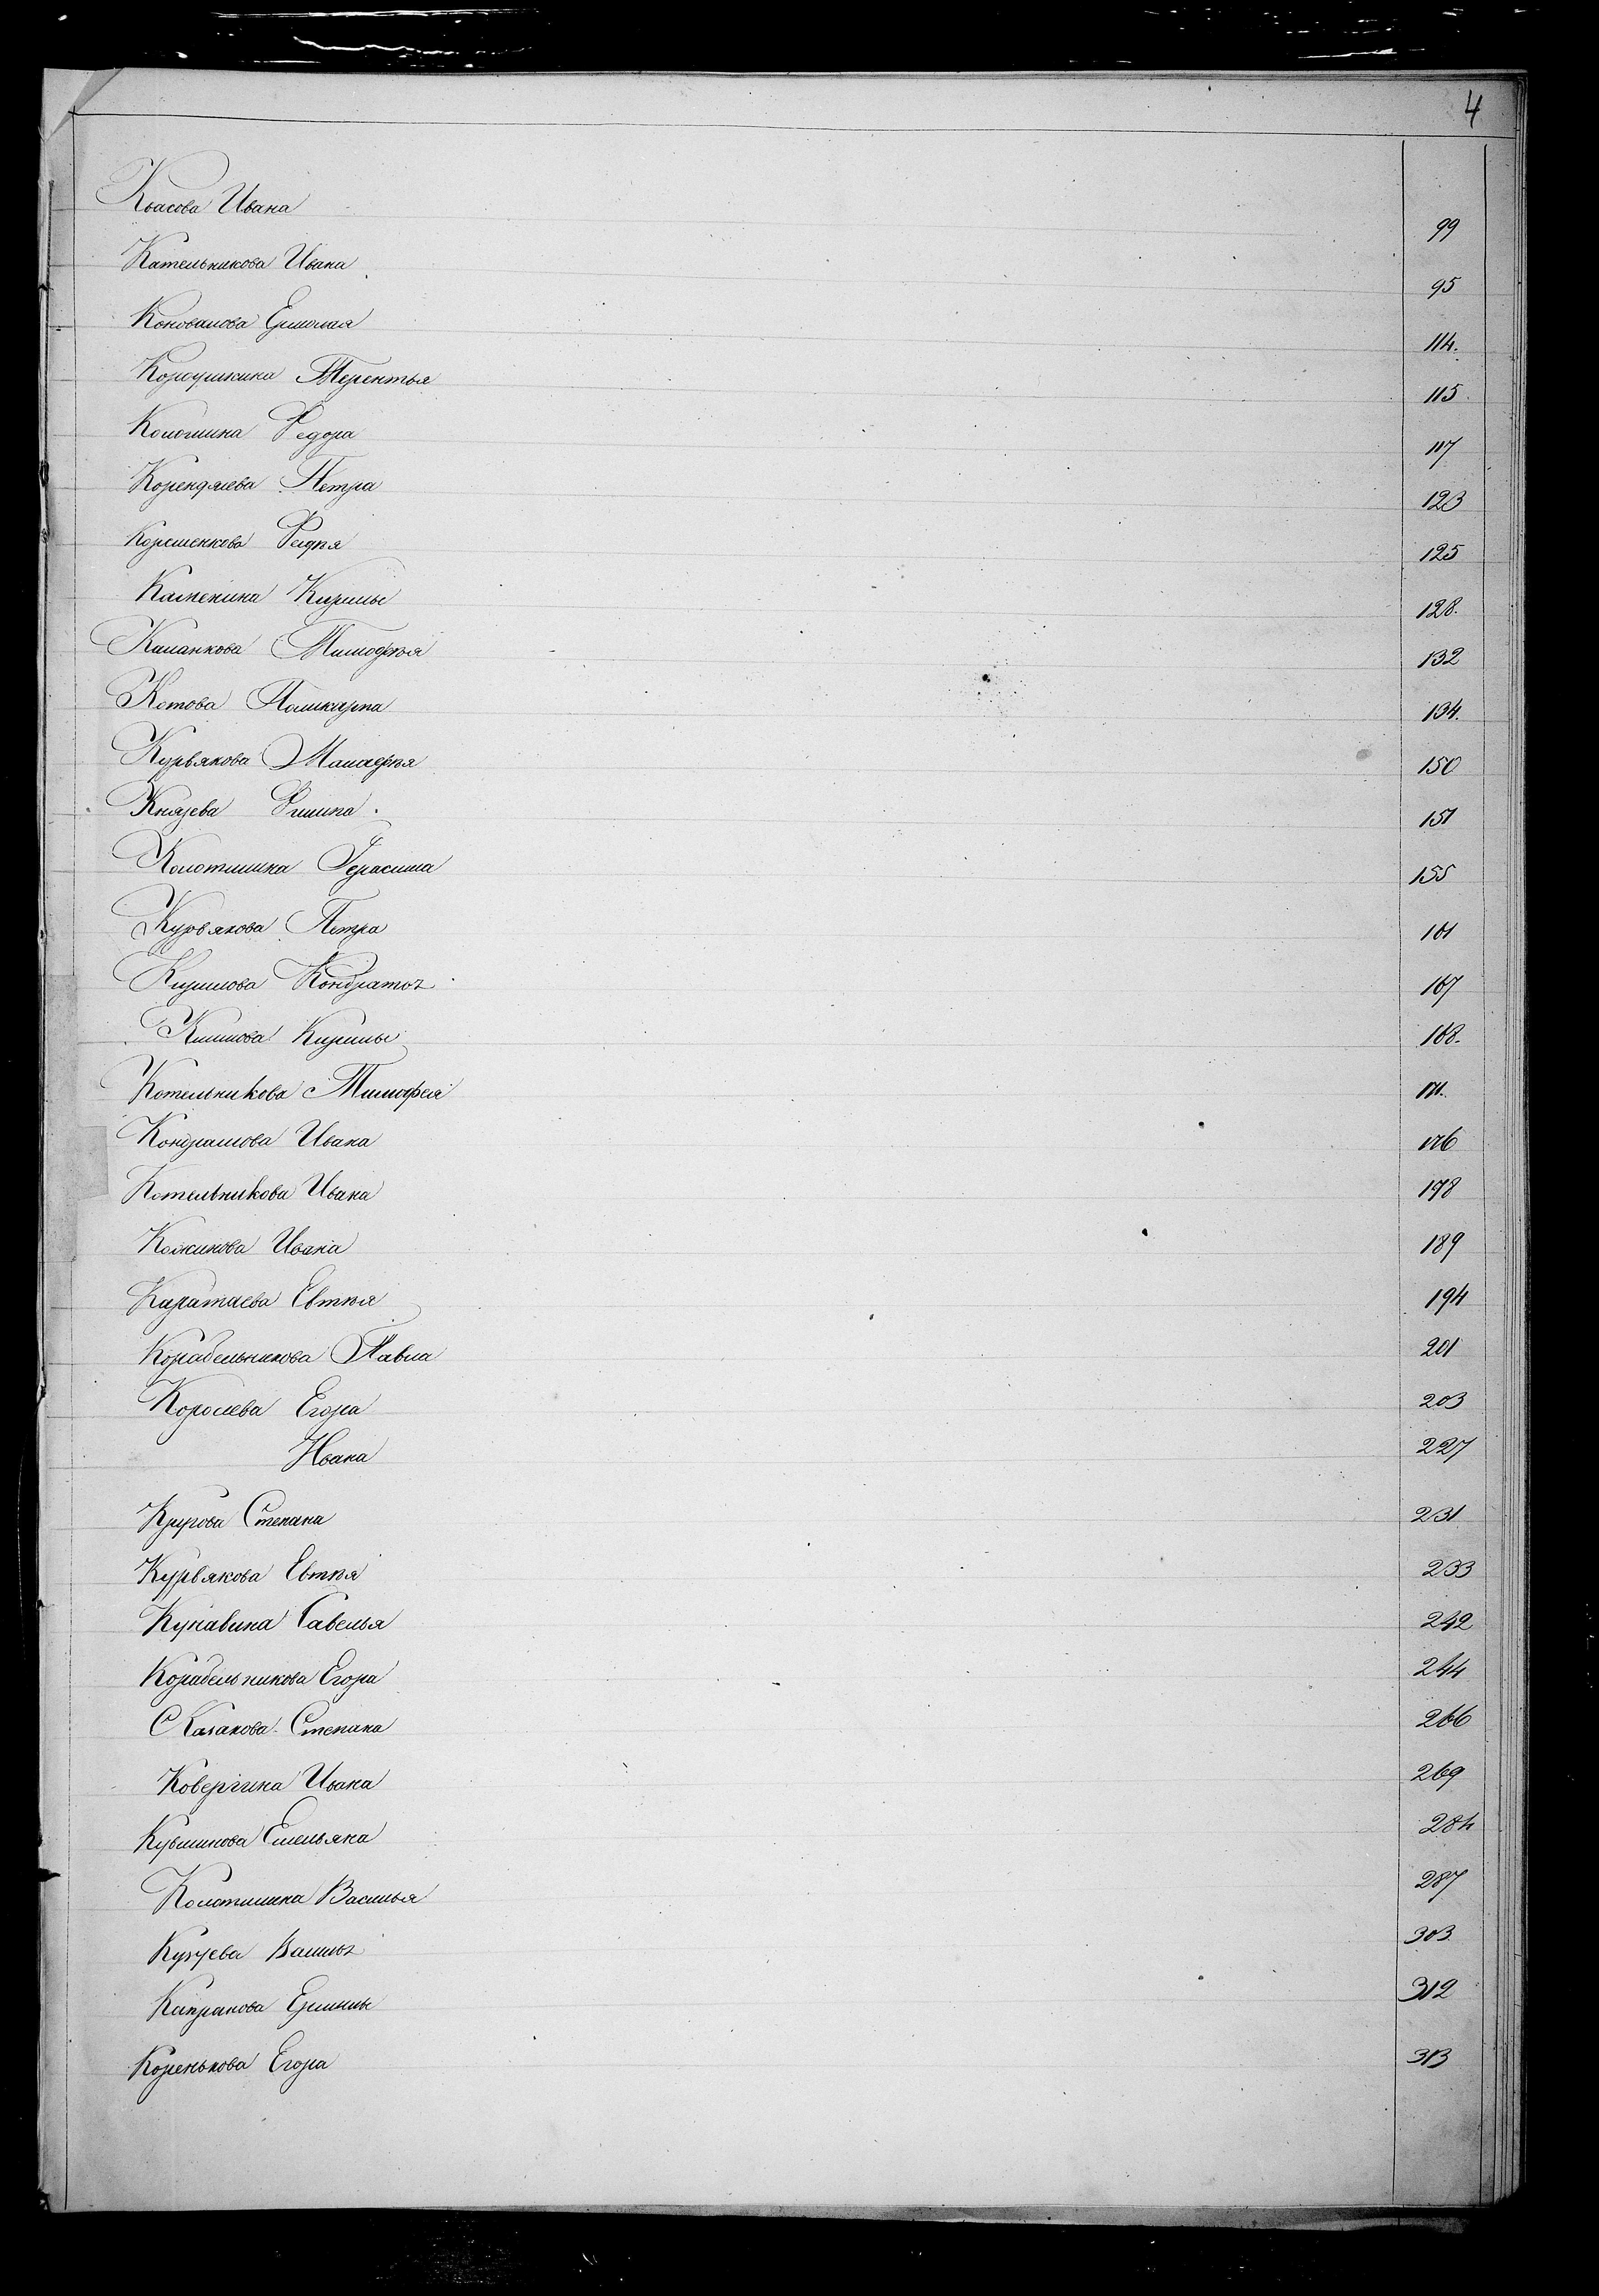 4
Квасова Ивана 99
Кательникова Ивана 95
Коновалова Ермолая 114.
Корсушкина Терентья 115.
Колошина Федора 117
Корендяева Петра 123
Корешенкова Фадѣя 125
Каменина Кирилы 128.
Каланкова Тимофѣя 132
Котова Поликарпа 134.
Курвякова Малафѣя 150
Князева Филипа 151
Колотилина Герасима 155
Курвякова Петра 161
Кирилова Кондратья 167
Климова Кирилы 168.
Котельникова Тимофея 171.
Кондрашова Ивана 176
Котельникова Ивана 178
Кожинова Ивана 189
Каратаева Евтѣя 194
Корабельникова Павла 201
Королева Егора 203
Ивана 227
Кругова Степана 231
Курвякова Евтѣя 233
Кунавина Савелья 242
Корабельникова Егора 244
Казакова Степана 266
Ковергина Ивана 269
Кувшинова Емельяна 284
Колотилина Василья 287
303
Капранова Ерилы 312
Коренькова Егора 313